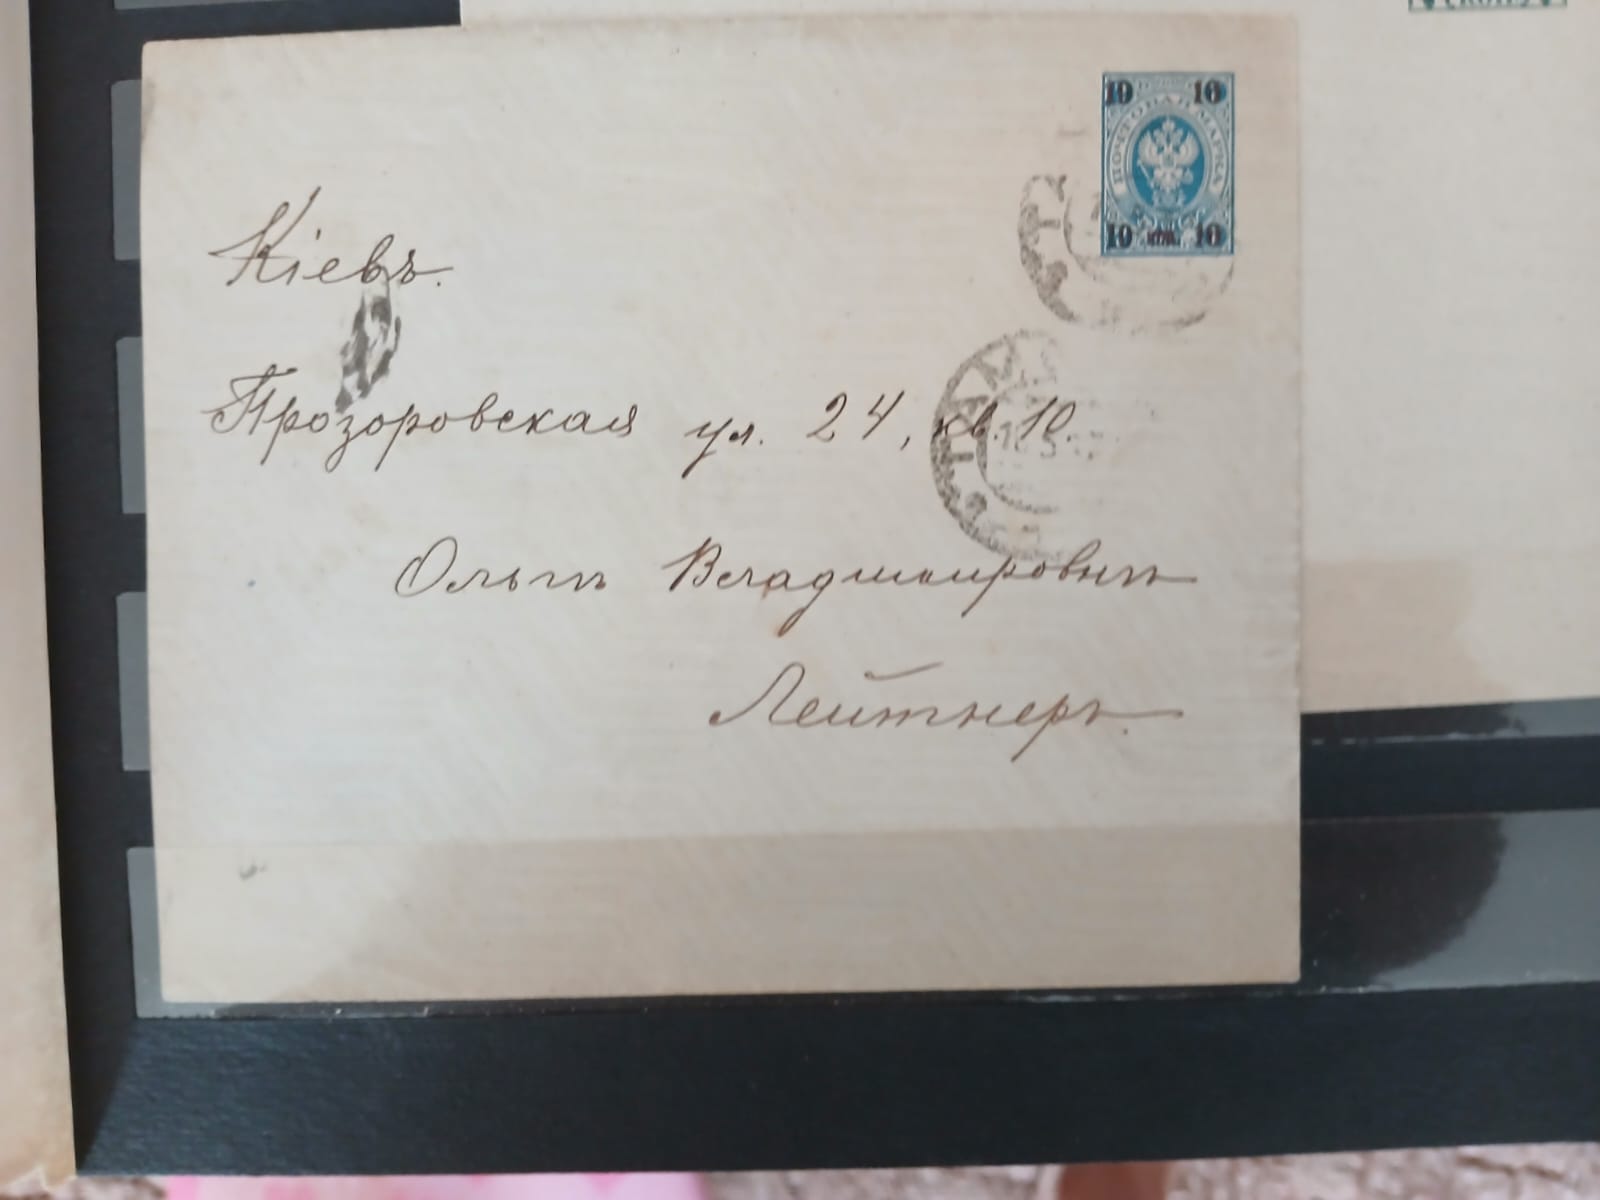 10 10
ПОЧТОВАЯ МАРКА
10 коп. 10
Кіевъ.
Прозоровская ул. 24, кв. 10.
Ольгѣ Владиміровнѣ
Лейтнеръ.